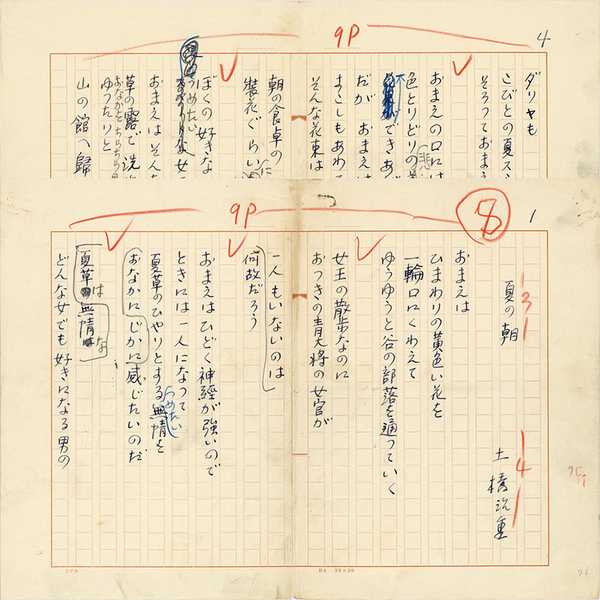 4
9P
ダリヤも
こびとの夏ス
そろっておまえ
おまえの口には
色とりどりの
ができあ
だが おまえ
そんな花束は
朝の食卓の
装花ぐらい
ぼくの好きな
つめたい
女
おまえはそん
草の露で洗
ゆったりと
山の館へ歸
1
8
9P
3
夏の朝
4
土橋治重
おまえは
ひまわりの黄色い花を
一輪口にくわえて
ゆうゆうと谷の部落を通っていく
女王の散歩なのに
おつきの青大将の女官が
一人もいないのは
何故だろう
おまえはひどく神経が強いので
ときには一人になって
夏草のひやりとする無情を
つめたい
おなかにじかに感じたいのだ
夏草は無情な
どんな女でも好きになる男の
B4 20×20